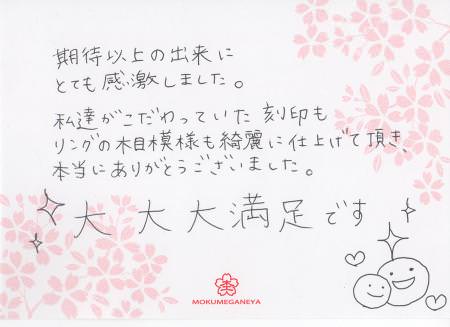 期待以上の出来に
とても感激しました。
私達がこだわっていた刻印も
リングの木目模様も綺麗に仕上げて頂き、
本当にありがとうございました。
大大大満足です
MOKUMEGANEYA